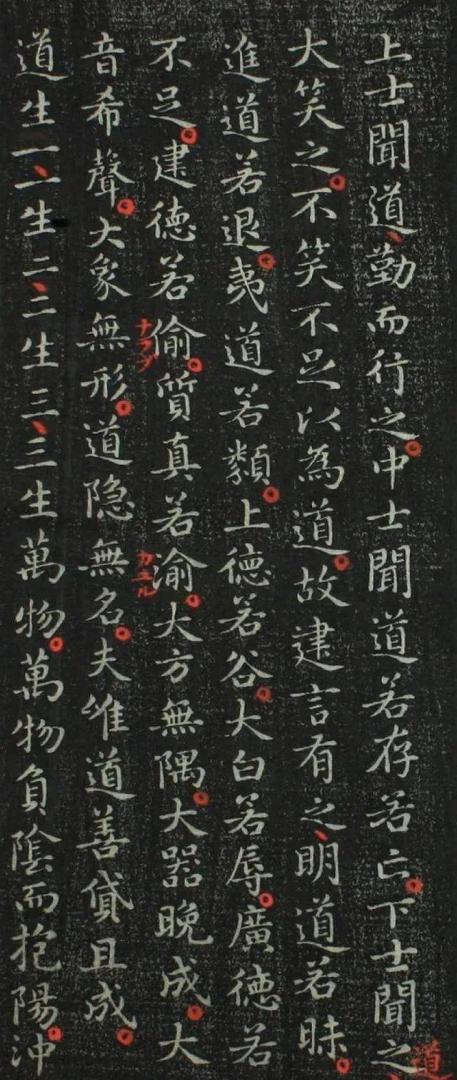 上士聞道、勤而行之。中士聞道若存若亡。下士聞之道、
大笑之。不笑不足以為道。故建言有之、明道若昧。
進道若退。夷道若類。上德若谷。大白若辱。廣德若
不足。建德若偷。質真若渝。大方無隅。大器晚成。大
音希聲。大象無形。道隐無名。夫唯道善貸且成。
道生一、一生二、二生三、三生萬物。萬物負陰而抱陽。沖